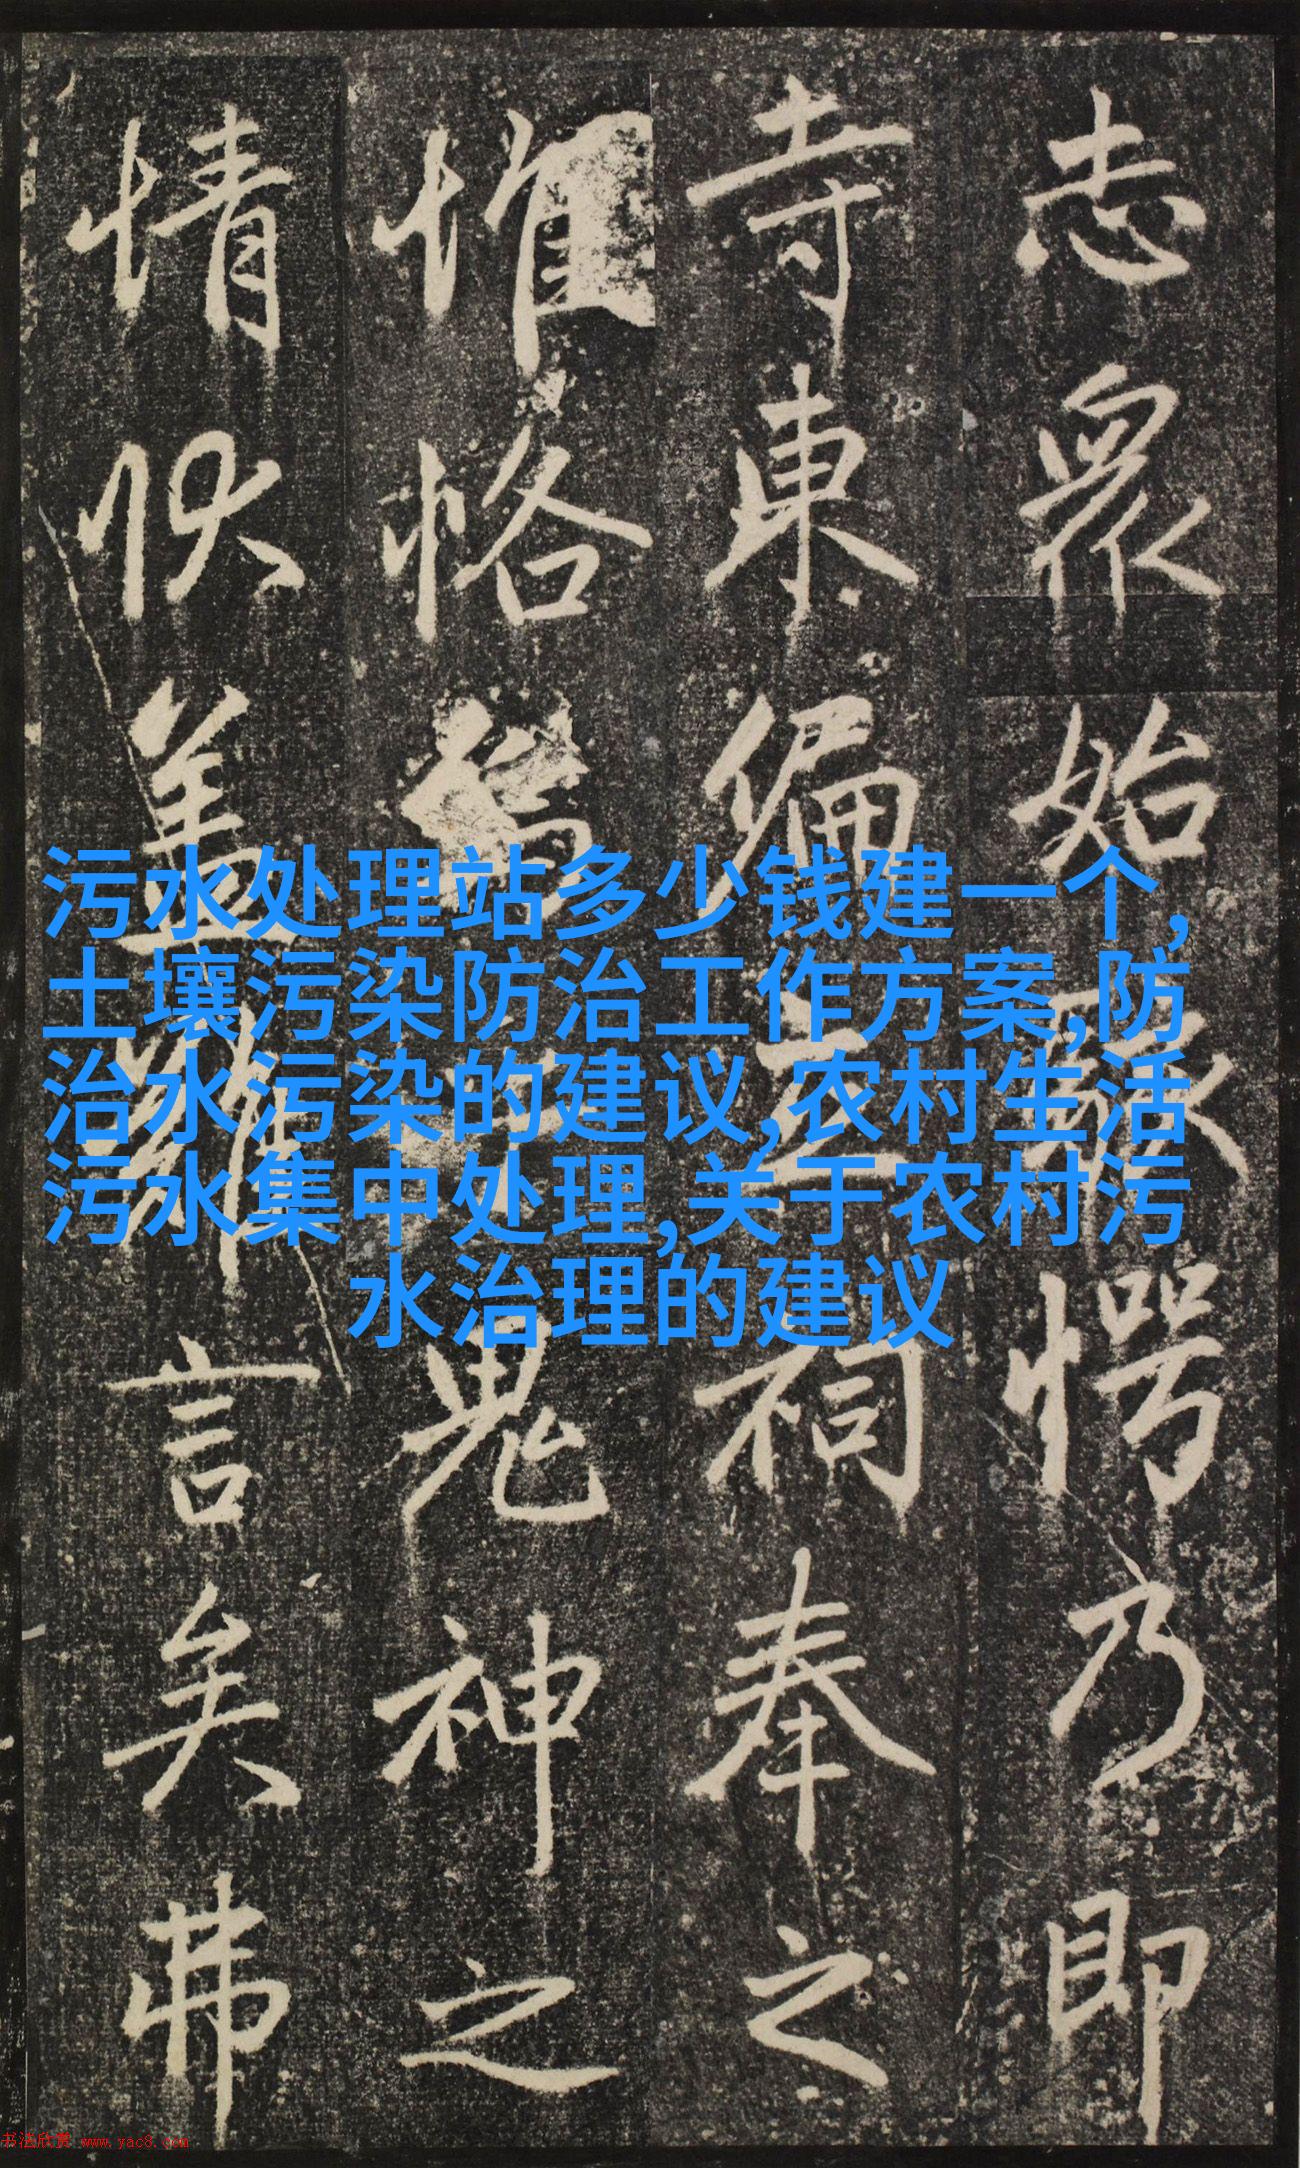 志眾始駭愕乃即
寺東偏立祠奉之
惟恪鬼神之
情狀蓋難言矣弗
污水处理站多少钱建一个,
土壤污染防治工作方案,防
治水污染的建议,农村生活
污水集中处理,关于农村污
水治理的建议
书法欣赏 www.yac8.com